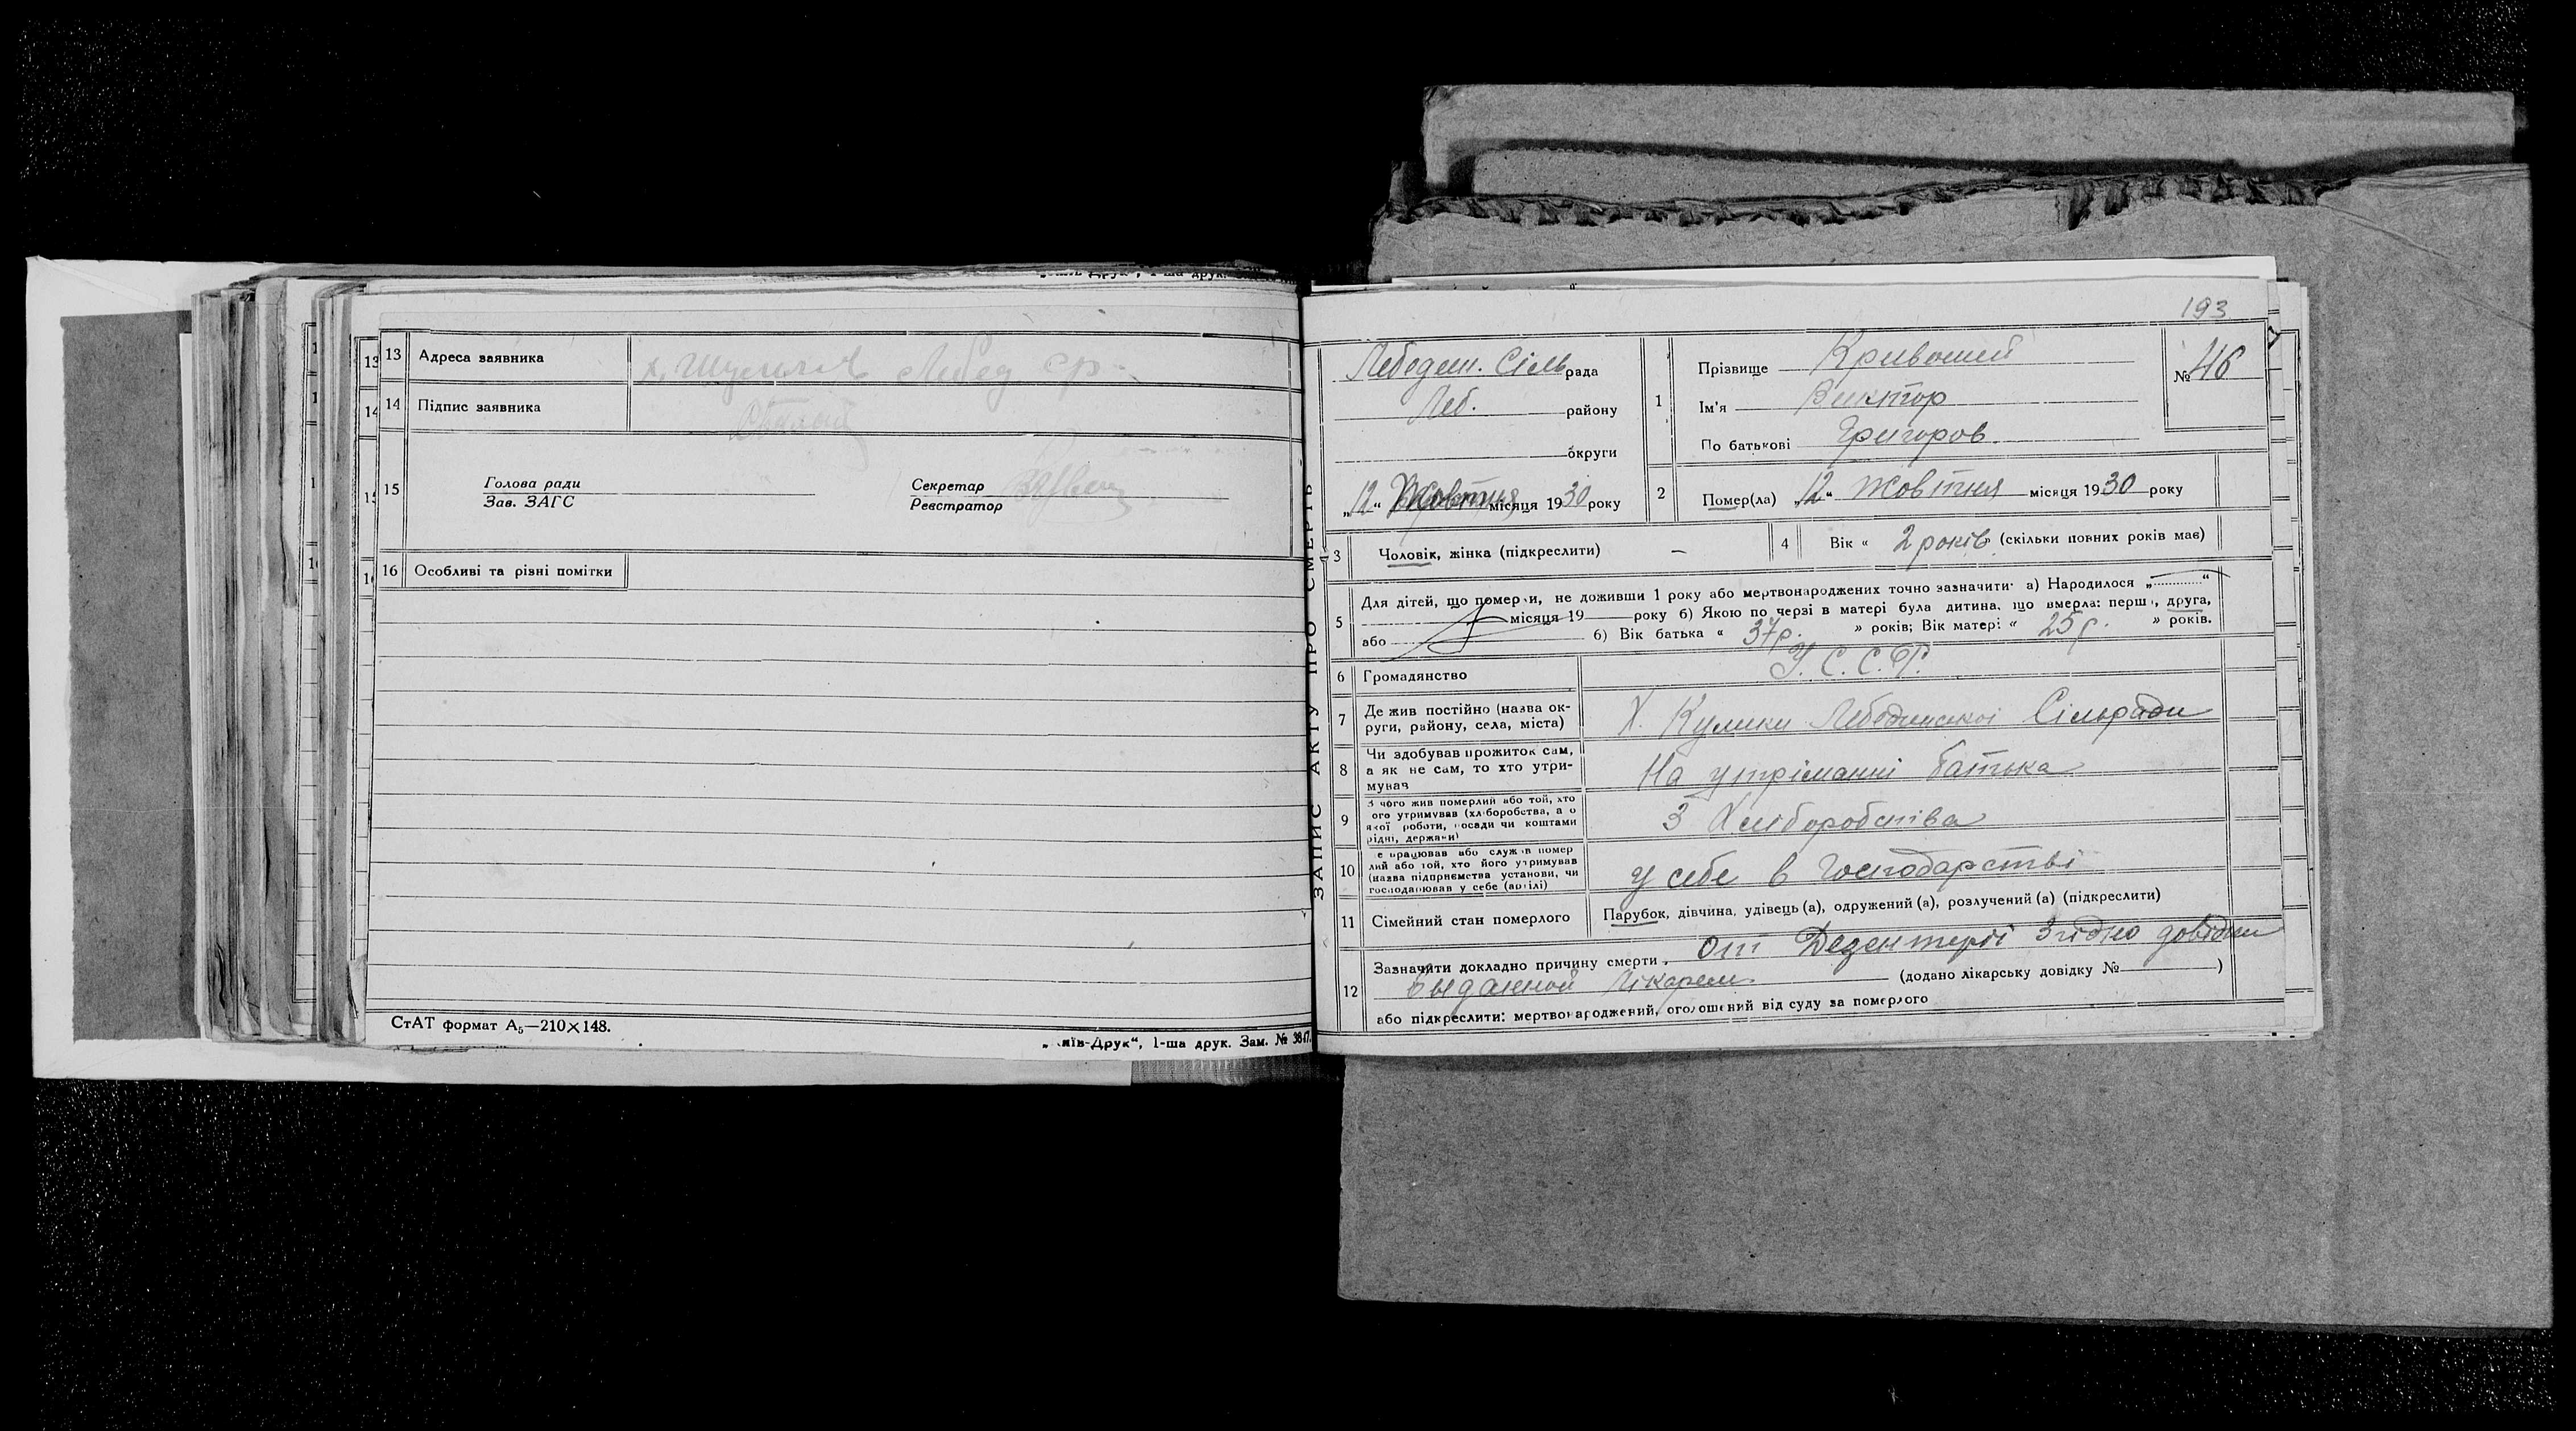 13 Адреса заявника
14 Підпис заявника
15 Голова ради
Зав. ЗАГС
Секретар
Реєстратор
16 Особливі та різні помітки
СтАТ формат А5—210×148.
„ иїв-Друк“, 1-ша друк. Зам. № 3847.
193
ЗАПИС АКТУ ПРО СМЕРТЬ
Лебедин. Сільрада
Леб. району
округи
„12“ Жовтня місяця 1930 року
1 Прізвище Кривошей
Ім'я Виктор
По батькові Григоров.
№ 46
2 Помер(ла) „12“ Жовтня місяця 1930 року
3 Чоловік, жінка (підкреслити) —
4 Вік « 2 років » (скільки повних років має)
5 Для дітей, що померли, не доживши 1 року або мертвонароджених точно зазначити: а) Народилося „...........“
місяця 19 року б) Якою по черзі в матері була дитина, що вмерла: перша, друга,
або б) Вік батька « 37р. » років; Вік матері: « 25 р. » років.
6 Громадянство У. С. С. Р.
7 Де жив постійно (назва ок-
руги, району, села, міста) Х. Кулики Лебединської Сільради
8 Чи здобував прожиток сам,
а як не сам, то хто утри-
мував На утріманні батька
9 З чого жив померлий або той, хто
ого утримував (хліборобства, а о
якої роботи, посади чи коштами
рідні, держави) З Хліборобства
10 е працював або служив помер
лий або той, хто його утримував
(назва підприємства установи, чи
господарював у себе (артілі) У себе в Господарстві
11 Сімейний стан померлого Парубок, дівчина, удівець (а), одружений (а), розлучений (а) (підкреслити)
12 Зазначити докладно причину смерти. От Дезентерії Згідно довідки
выданной Лікарем (додано лікарську довідку № )
або підкреслити: мертвонароджений, оголошений від суду за померлого